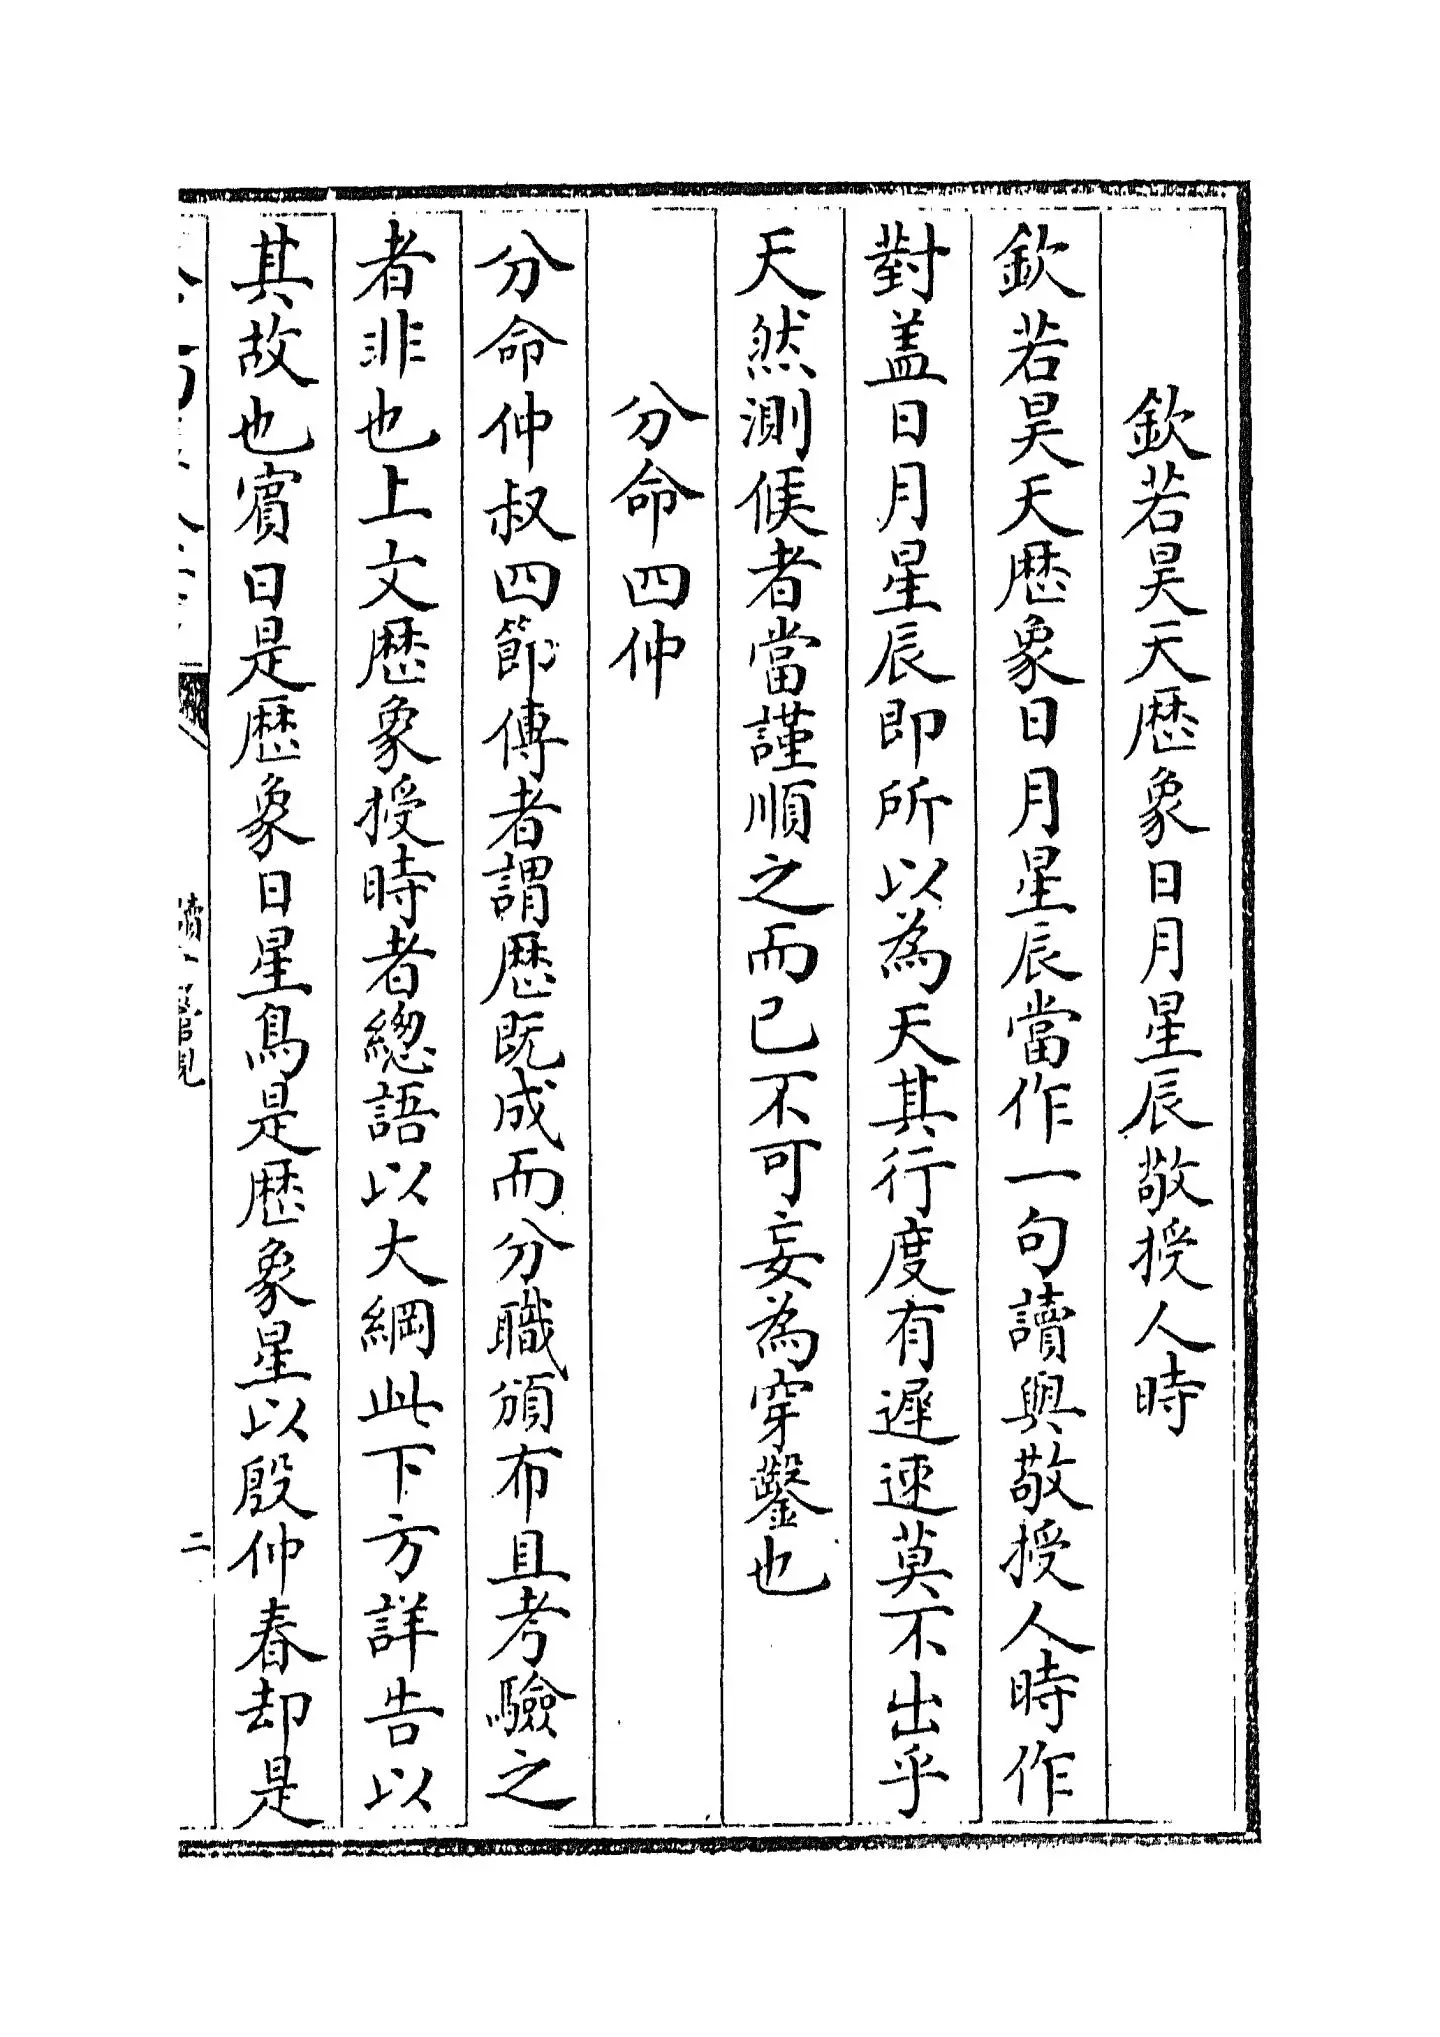 欽若昊天歴象日月星辰敬授人時
欽若昊天歴象日月星辰當作一句讀與敬授人時作
對盖日月星辰即所以為天其行度有遲速莫不出乎
天然測候者當謹順之而已不可妄為穿鑿也
分命四仲
分命仲叔四節傳者謂歴既成而分職頒布且考驗之
者非也上文歴象授時者總語以大綱此下方詳告以
其故也賓日是歴象日星鳥是歴象星以殷仲春却是
二